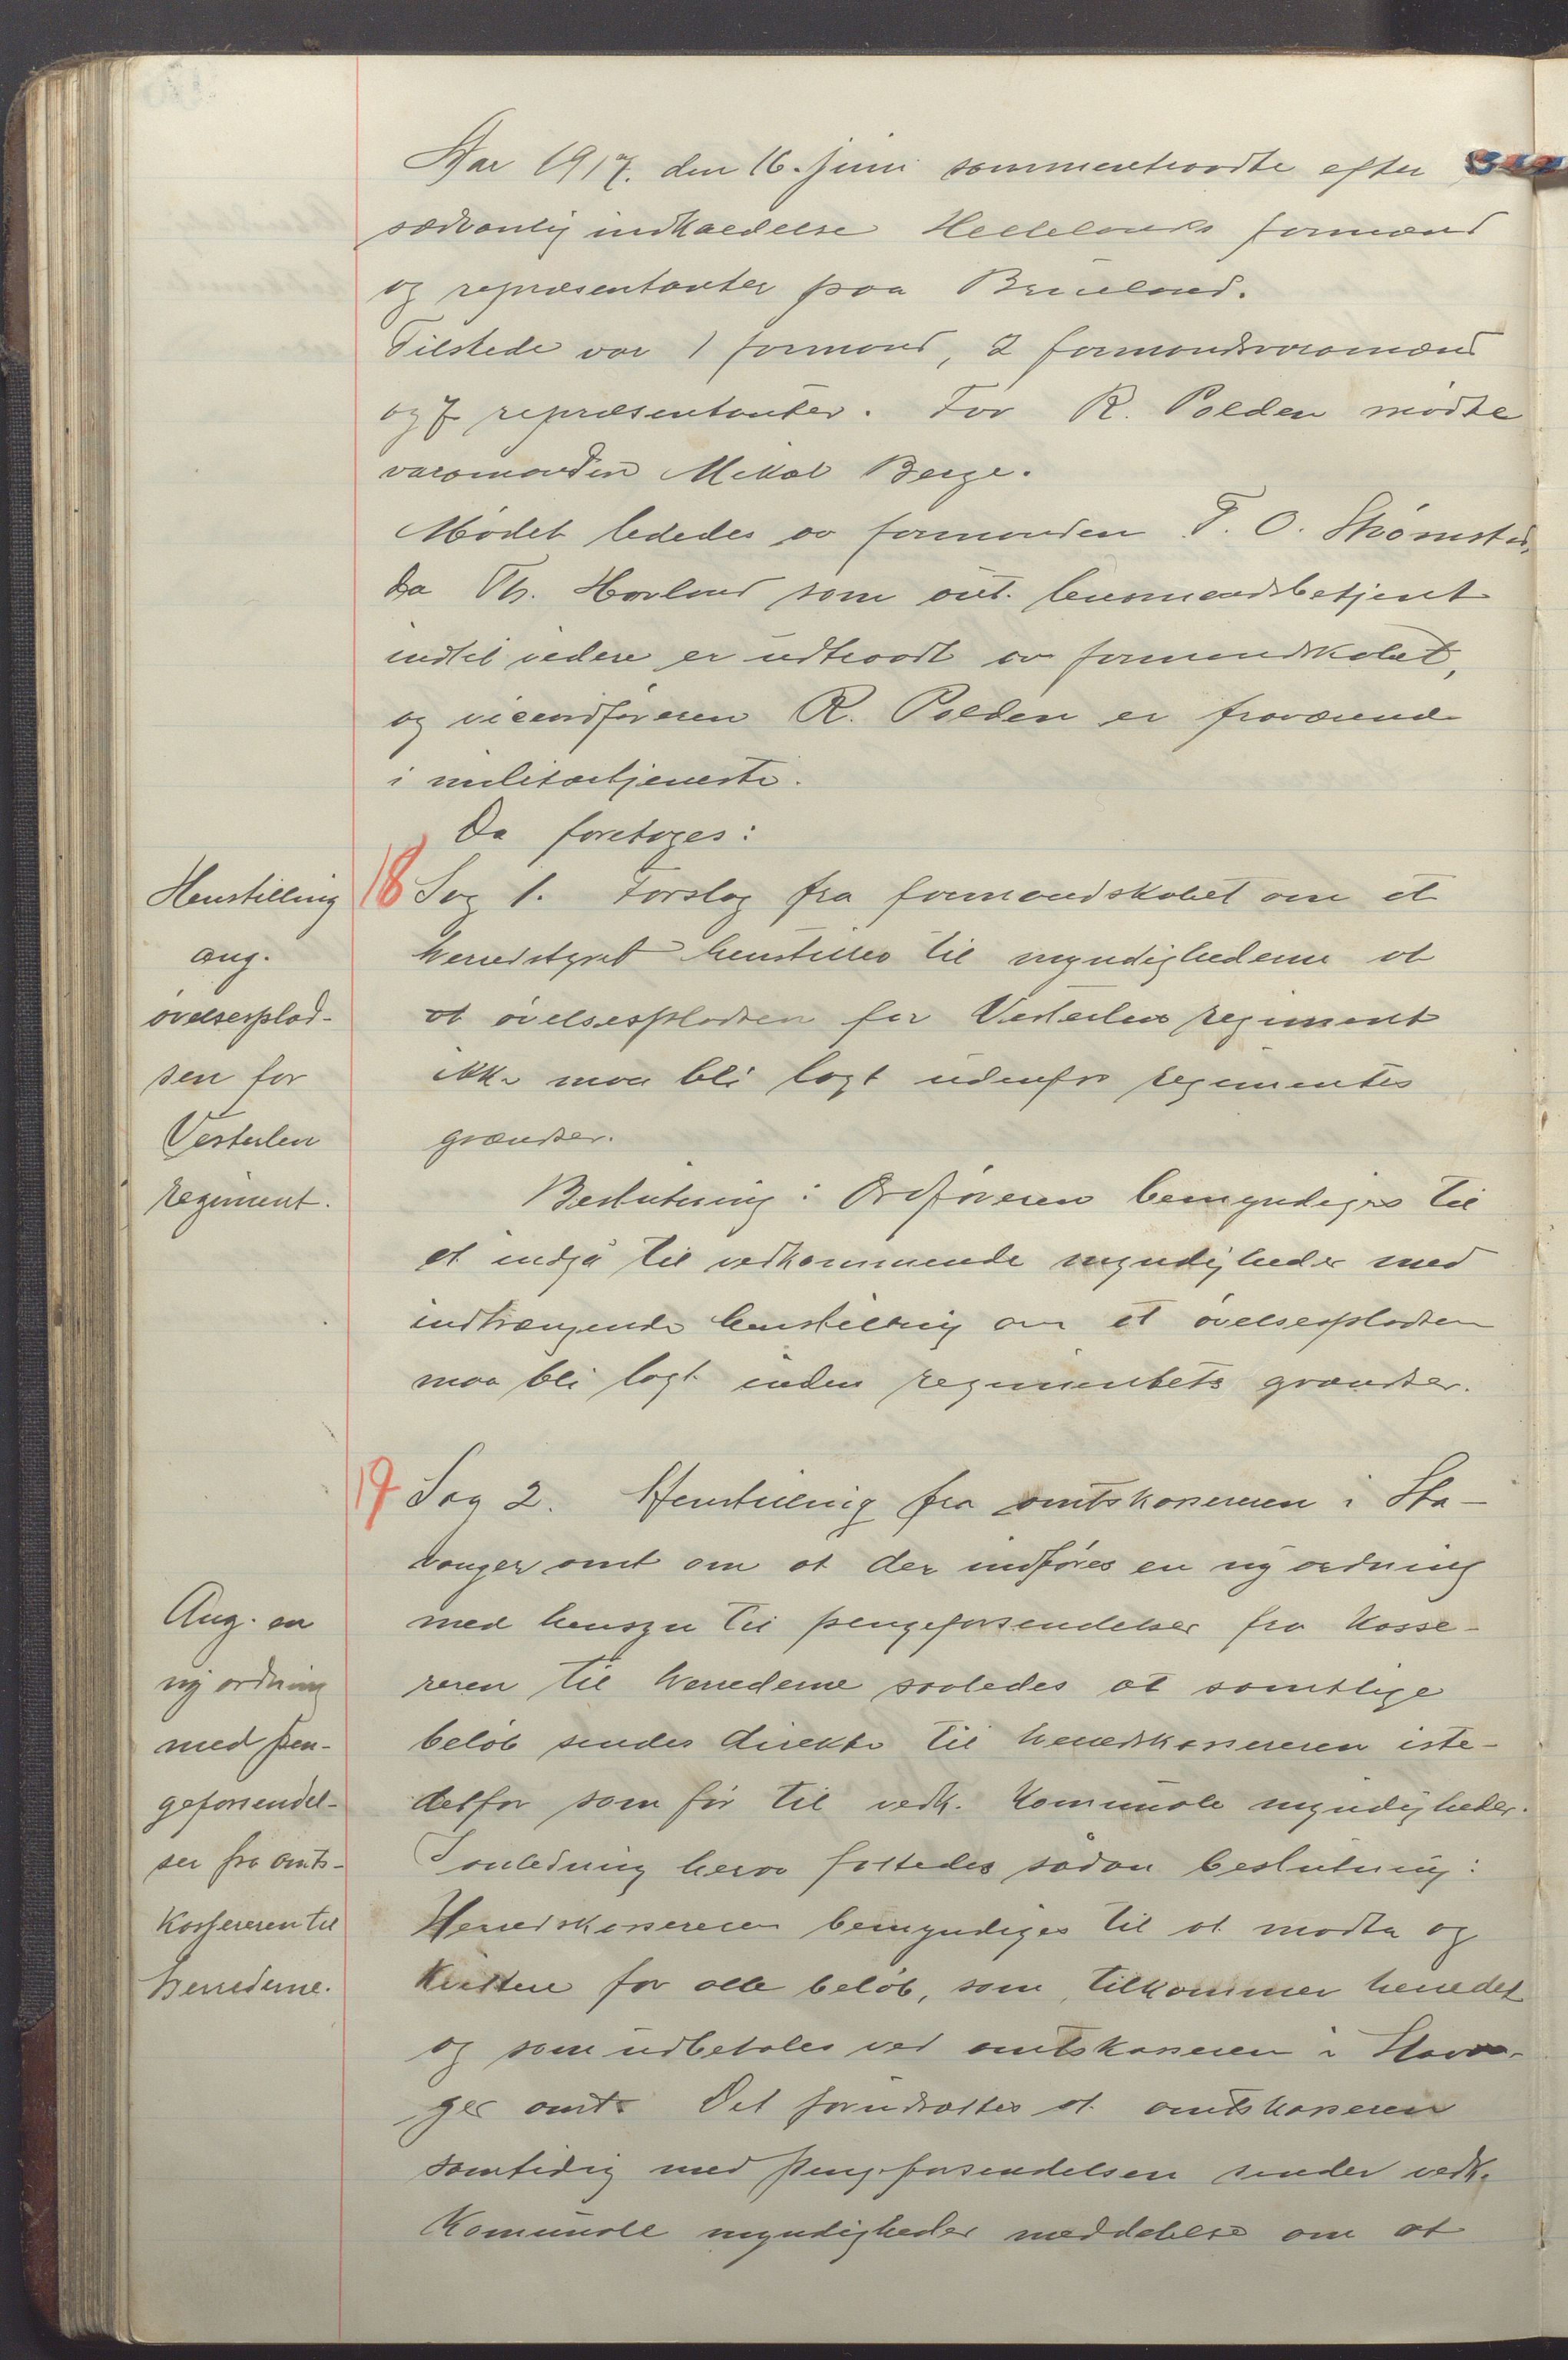 Aar 1917. den 16. juni sammentraadte efter
sædvanlig indkaldelse Hellelands formænd
og repræsentanter paa Bruelund.
Tilstede var 1 formand, 2 formandsvaramænd
og 7 repræsentanter. For R. Polden mødte
varamanden Mikal Berge.
Mødet lededes av formanden T. O. Strömstad,
da Th. Hovland som aut. lensmandsbetjent
indtil videre er udtraadt av formandskabet,
og viceordføreren R. Polden er fraværende
i militærtjeneste.
Da foretoges:
Henstilling
ang.
øvelsesplad-
sen for
Vesterlen
regiment.
18 Sag 1. Forslag fra formandskabet om at
herredstyret henstilles til myndighederne at
at øvelsespladsen for Vesterlens regiment
ikke maa bli lagt udenfor regimentes
grændser.
Beslutning: Ordføreren bemyndiges til
at indgå til vedkommende myndigheder med
indtrængende henstilling om at øvelsespladsen
maa bli lagt inden regimentets grændser.
19 Sag 2. Henstilling fra amtskassereren i Sta-
vanger amt om at der indføres en ny ordning
Ang. en
ny ordning
med pen-
geforsendel-
ser fra amts-
kassereren til
herrederne.
med hensyn til pengeforsendelser fra kasse-
reren til herrederne saaledes at samtlige
beløb sendes direkte til herredskassereren iste-
detfor som før til vedk. kommunale myndigheder.
I anledning herav fattedes sådan beslutning:
Herredskassereren bemyndiges til at modta og
kvittere for alle beløb, som tilkommer herredet
og som udbetales ved amtskasseren i Stavan-
ger amt. Det forudsættes at amtskasseren
samtidig med pengeforsendelsen sender vedk.
kommunale myndigheder meddelelse om at